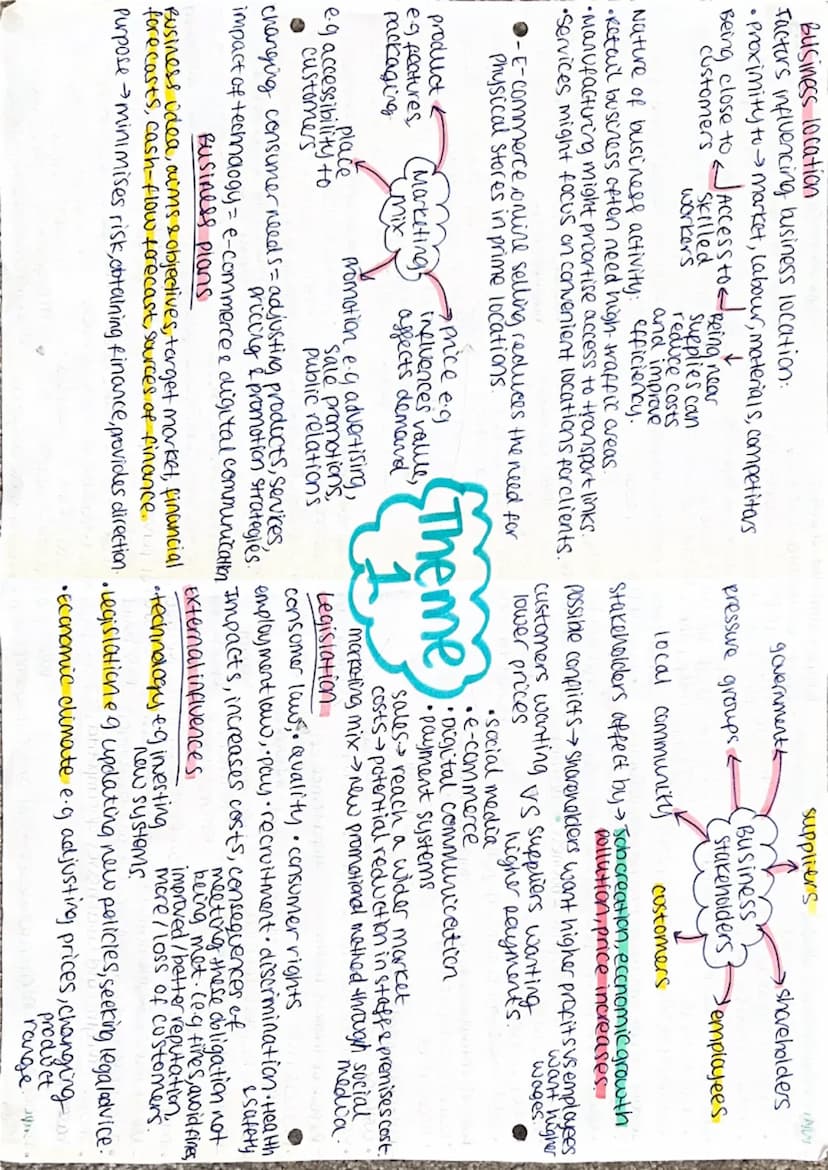 Business location
Factors influencing business location:
• Proximity to → market, labour, materials, competitors
Being close to
customers
Access to
skilled
workers
Being near
supplies can
reduce costs
and improve
efficiency.
Nature of business activity:
• Retail business often need high-traffic areas
• Manufacturing might priortise access to transport links.
• Services might focus on convenient locations for clients.
- E-commerce, online selling reduces the need for
Physical stores in prime locations
Marketing
mix
product
e.g, features,
packaging
price e.g
influences value,
affects demand
place
e.g accessibility to
customers
Promotion, e.g advertising,
sale promotions,
public relations
changing consumer needs = adjusting products, services,
pricing & promotion strategies.
impact of technology = e-commerce & digital communication
Business plans
Business idea, aims & objectives, target market, financial
forecasts, cash-flow forecast, sources of finance.
Purpose → minimises risk, obtaining finance, provides direction.
Theme
1
Business
stakeholders
suppliers
government
shareholders
pressure groups
employees
local community
customers
stakeholders affect by → Job creation, economic growth
pollution, price increases.
possible conflicts → shareholders want higher profits vs employees
want higher
wages.
customers wanting VS suppliers wanting
lower prices
higher payments.
• social media
• E-commerce
• Digital communication
• payment systems
sales → reach a wider market
costs → potential reduction in staff & premises cost
marketing mix → new promotional method through social
media
Legislation
consumer law, • quality • consumer rights
employment law, • pay • recruitment • discrimination • health
& safety
Impacts, increases costs, consequences of
meeting these obligation not
being met. (e.g fines, avoid fines,
improved/better reputation,
more/loss of customers.
External influences
• technology, e.g investing
new systems
• legislation e.g updating new policies, seeking legal advice.
• Economic climate e.g adjusting prices, changing
product
range.